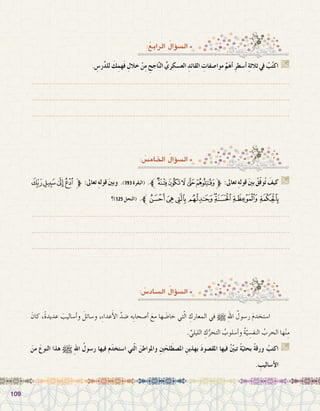 • السؤال الرابع:
اكتُبْ في ثلاثةِ أسطرٍ أهمَّ مواصفاتِ القائدِ العسكريِّ النَّاجحِ مِنْ خلالِ فهمِكَ للدَّرسِ.
• السؤال الخامس:
كيفَ تُوفِّقُ بينَ قولِه تعالى: ﴿ وَقَٰتِلُوهُمْ حَتَّىٰ لَا تَكُونَ فِتْنَةٌ ﴾. (البقرة 193). وبينَ قولِه تعالى: ﴿ ٱدْعُ إِلَىٰ سَبِيلِ رَبِّكَ
بِٱلْحِكْمَةِ وَٱلْمَوْعِظَةِ ٱلْحَسَنَةِ وَجَٰدِلْهُم بِٱلَّتِي هِيَ أَحْسَنُ ﴾. (النحل 125)؟
• السؤال السادس:
استخدَمَ رسولُ اللهِ ﷺ في المعاركِ الَّتي خاضَها معَ أصحابِهِ ضدَّ الأعداءِ، وسائلَ وأساليبَ عديدةً، كانَ
منْها الحربُ النفسيَّةُ وأسلوبُ التحرُّكِ اللَّيليِّ.
اكتبْ ورقةً بحثيَّةً تبيِّنُ فيها المقصودَ بهذينِ المصطلحَيْنِ والمواطنَ الَّتي استخدَمَ فيها رسولُ اللهِ ﷺ هذا النوعَ مِنَ
الأساليبِ.
109